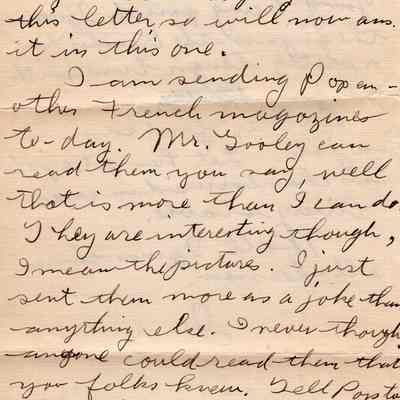 this letter, so will now ans.
it in this one.
I am sending Pop an-
other French magazines
to-day. Mr. Gooley can
read them you say, well
that is more than I can do.
They are interesting though,
I mean the pictures. I just
sent them more as a joke than
anything else. I never though
anyone could read them that
you folks knew. Tell Pop to